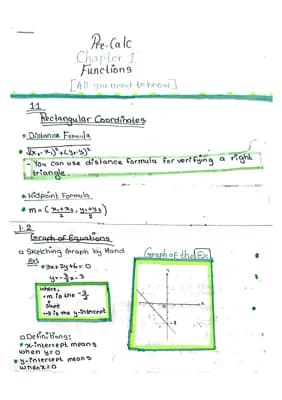 Pre-Calc
Chapter 1
Functions
[All you need to know]
1.1
Rectangular Coordinates
Distance Formula
- You can use distance formula for verifying a right
triangle.
Midpoint Formula
1.2
Graph of Equations
Sketching Graph by Hand
Graph of the Ex
EX
3x+2y+6=0
y=-3/2x-3
where,
-m is the -3/2
slope
-3 is the y-intercept
Definitions:
x-intercept means
when y=0
y-intercept means
when x=0